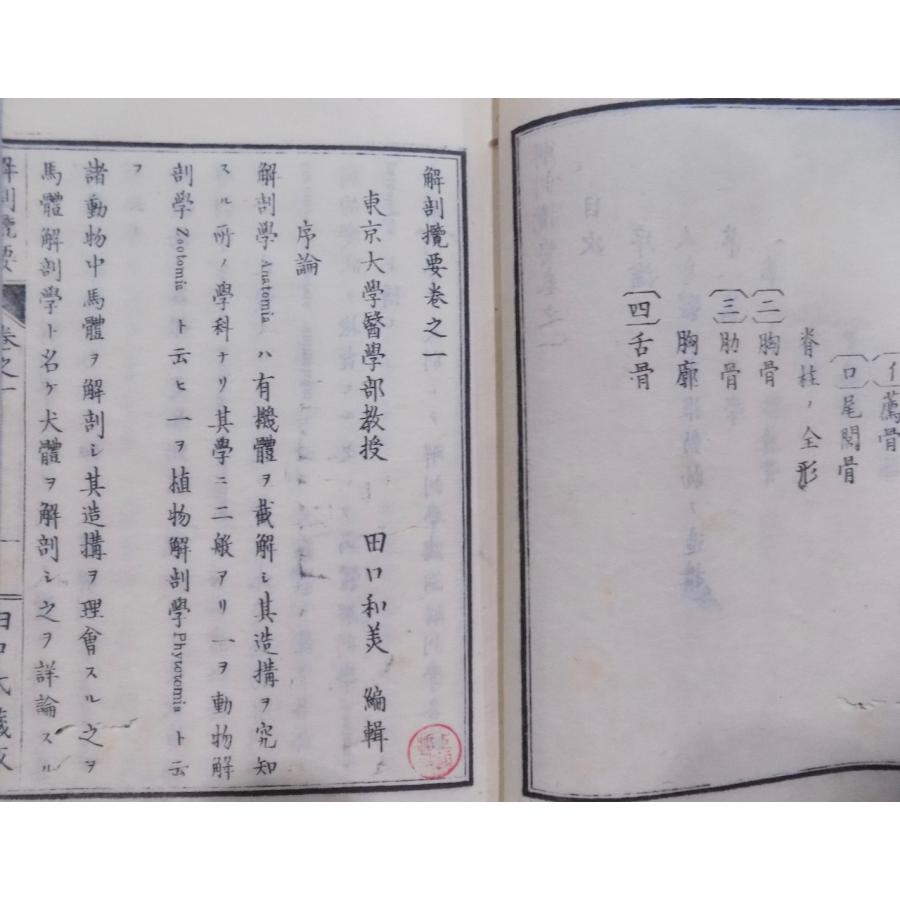 〔イ〕薦骨
〔ロ〕尾閭骨
脊柱ノ全形
〔二〕胸骨
〔三〕肋骨
胸廓
〔四〕舌骨
解剖攬要卷之一
東京大學醫學部教授 田口和美 編輯
序論
解剖學Anatomia ハ有機體ヲ截解シ其造搆ヲ究知
スル所ノ學科ナリ其學ニ二般アリ一ヲ動物解
剖學Zootomia ト云ヒ一ヲ植物解剖學Phytotomia ト云
フ
諸動物中馬體ヲ解剖シ其造搆ヲ理會スル之ヲ
馬體解剖學ト名ケ犬體ヲ解剖シ之ヲ詳論スル
解剖攬要 卷之一 一 田口氏藏版